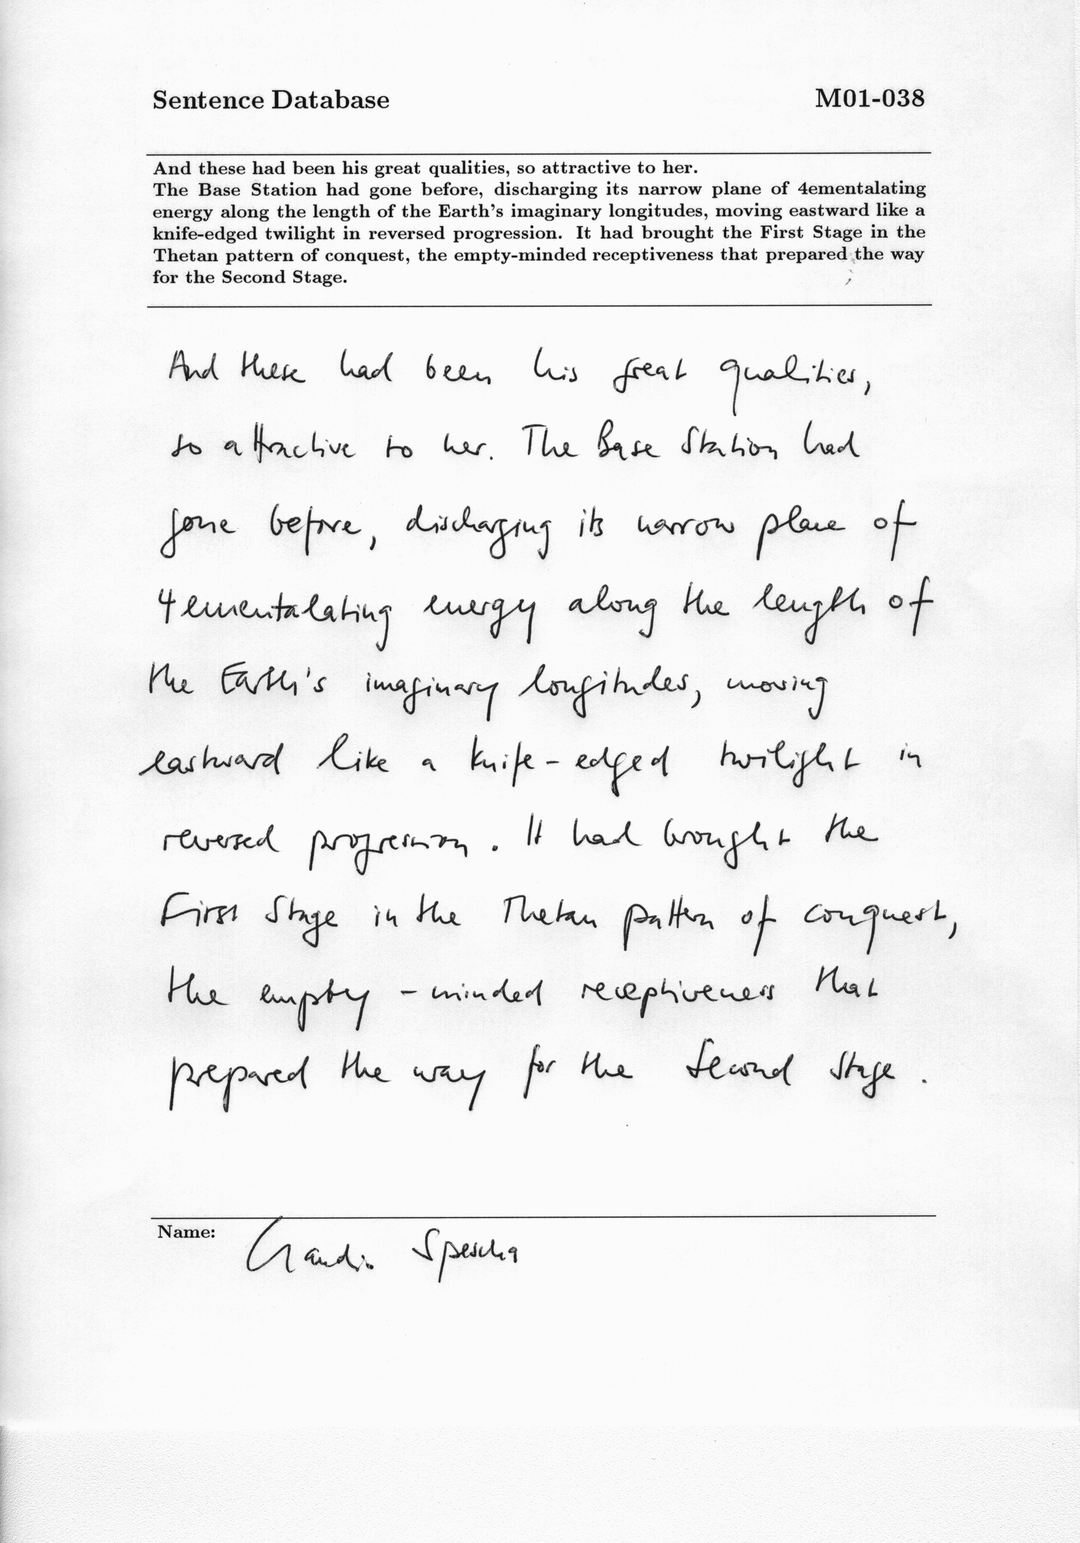 Sentence Database
M01-038
And these had been his great qualities, so attractive to her.
The Base Station had gone before, discharging its narrow plane of 4ementalating
energy along the length of the Earth's imaginary longitudes, moving eastward like a
knife-edged twilight in reversed progression. It had brought the First Stage in the
Thetan pattern of conquest, the empty-minded receptiveness that prepared the way
for the Second Stage.
And these had been his great qualities,
so attractive to her. The Base Station had
gone before, discharging its narrow plane of
4ementalating energy along the length of
the Earth's imaginary longitudes, moving
eastward like a knife-edged twilight in
reversed progression. It had brought the
First Stage in the Thetan pattern of conquest,
the empty-minded receptiveness that
prepared the way for the Second Stage.
Name: Claudio Spescha